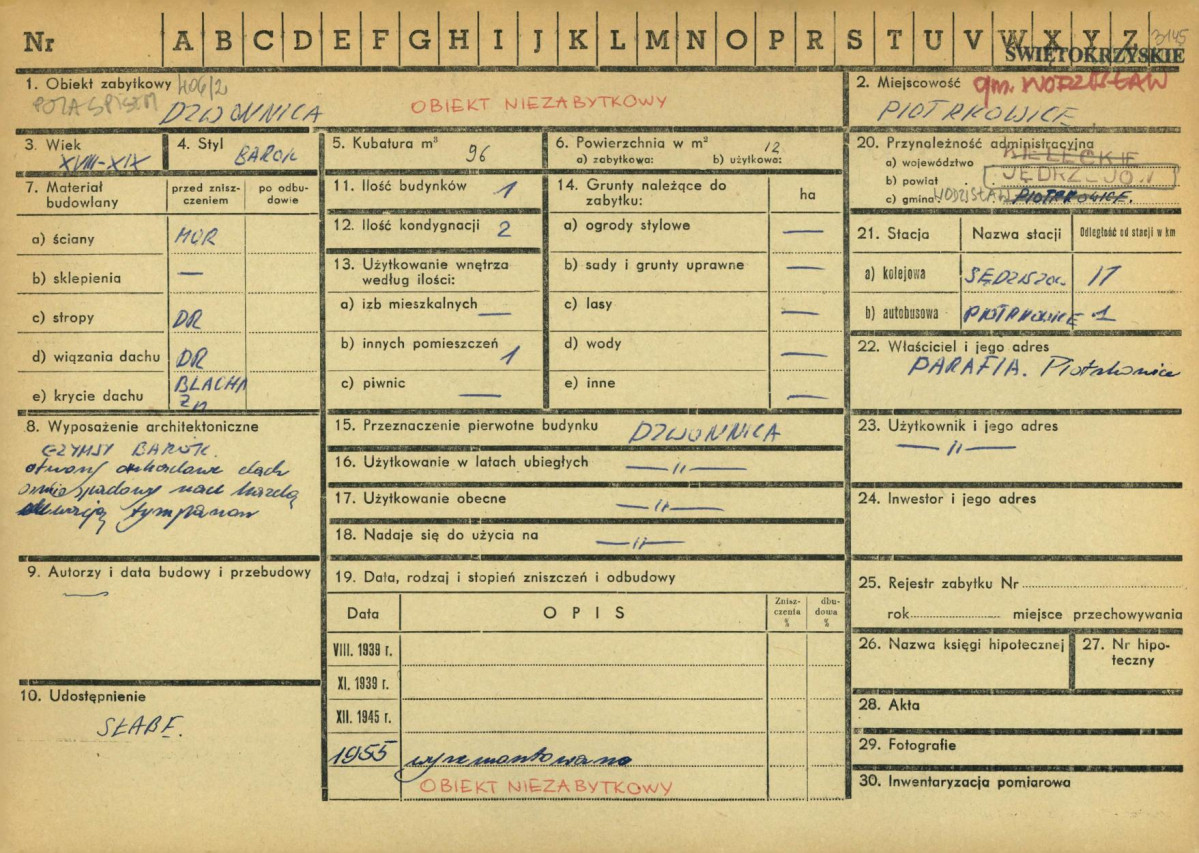 Nr A B C D E F G H I J K L M N O P R S T U V W X Y Z 3145
ŚWIĘTOKRZYSKIE
1. Obiekt zabytkowy 406/2
POZA SPISEM
DZWONNICA
OBIEKT NIEZABYTKOWY
2. Miejscowość gm. WODZISŁAW
PIOTRKOWICE
3. Wiek
XVIII-XIX
4. Styl
BAROK
5. Kubatura m³
96
6. Powierzchnia w m²
12
a) zabytkowa: b) użytkowa:
7. Materiał budowlany
przed znisz-
czeniem
po odbu-
dowie
a) ściany MUR
b) sklepienia —
c) stropy DR
d) wiązania dachu DR
e) krycie dachu BLACHA
Zn
8. Wyposażenie architektoniczne
GZYMSY BAROK.
otwory arkadowe dach
ośmiospadowy nad każdą
elewacją tympanon
9. Autorzy i data budowy i przebudowy
—
10. Udostępnienie
SŁABE.
11. Ilość budynków 1
12. Ilość kondygnacji 2
13. Użytkowanie wnętrza
według ilości:
a) izb mieszkalnych —
b) innych pomieszczeń 1
c) piwnic —
14. Grunty należące do
zabytku:
ha
a) ogrody stylowe —
b) sady i grunty uprawne —
c) lasy —
d) wody —
e) inne —
15. Przeznaczenie pierwotne budynku DZWONNICA
16. Użytkowanie w latach ubiegłych —"—
17. Użytkowanie obecne —"—
18. Nadaje się do użycia na —"—
19. Data, rodzaj i stopień zniszczeń i odbudowy
Data
OPIS
Znisz-
czenia
%
dbu-
dowa
%
VIII. 1939 r.
XI. 1939 r.
XII. 1945 r.
1955 wyremontowana
OBIEKT NIEZABYTKOWY
20. Przynależność administracyjna
a) województwo KIELECKIE
b) powiat JĘDRZEJÓW
c) gmina WODZISŁAW PIOTRKOWICE.
21. Stacja
Nazwa stacji
Odległość od stacji w km
a) kolejowa SĘDZISZÓW 17
b) autobusowa PIOTRKOWICE 1
22. Właściciel i jego adres
PARAFIA. Piotrkowice
23. Użytkownik i jego adres
—"—
24. Inwestor i jego adres
25. Rejestr zabytku Nr
rok miejsce przechowywania
26. Nazwa księgi hipotecznej
27. Nr hipo-
teczny
28. Akta
29. Fotografie
30. Inwentaryzacja pomiarowa